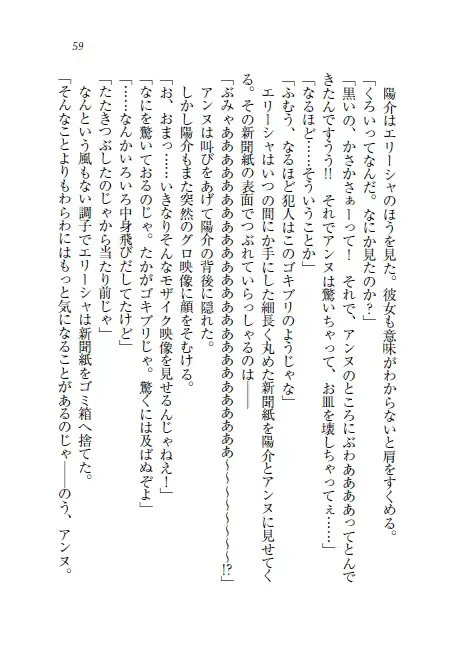 59
　陽介はエリーシャのほうを見た。彼女も意味がわからないと肩をすくめる。
「くろいってなんだ。なにか見たのか？」
「黒いの、かさかさぁーって！　それで、アンヌのところにぶわああああってとんで
きたんですうう!!　それでアンヌは驚いちゃって、お皿を壊しちゃってぇ……」
「なるほど……そういうことか」
「ふむう、なるほど犯人はこのゴキブリのようじゃな」
　エリーシャはいつの間にか手にした細長く丸めた新聞紙を陽介とアンヌに見せてく
る。その新聞紙の表面でつぶれていらっしゃるのは――
「ぶみゃああああああああああああああああああああああああ～～～～～～～!?」
　アンヌは叫びをあげて陽介の背後に隠れた。
　しかし陽介もまた突然のグロ映像に顔をそむける。
「お、おまっ……いきなりそんなモザイク映像を見せるんじゃねえ！」
「なにを驚いておるのじゃ。たかがゴキブリじゃ。驚くには及ばぬぞよ」
「……なんかいろいろ中身飛びだしてたけど」
「たたきつぶしたのじゃから当たり前じゃ」
　なんという風もない調子でエリーシャは新聞紙をゴミ箱へ捨てた。
「そんなことよりもわらわにはもっと気になることがあるのじゃ――のう、アンヌ。